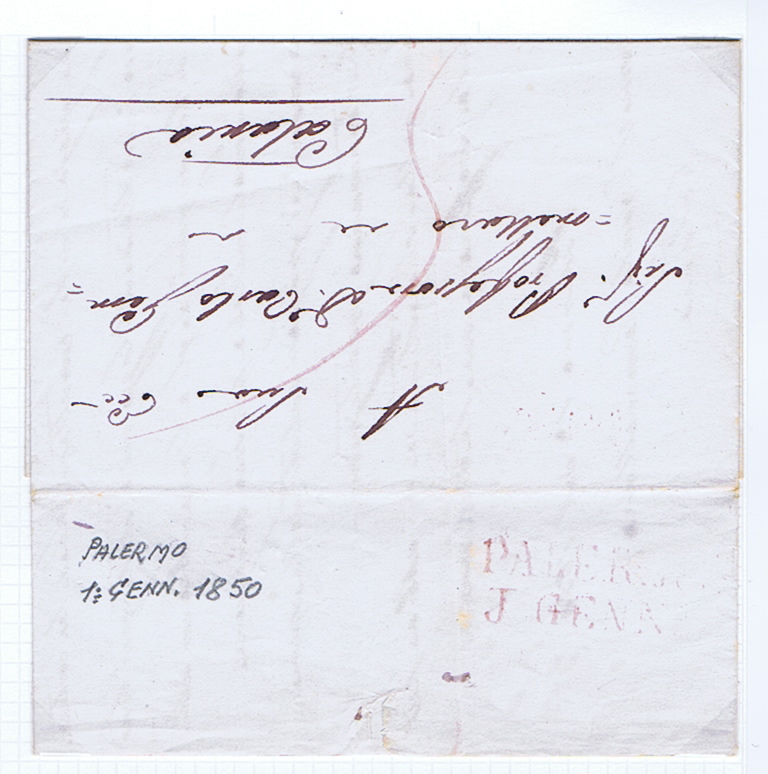 A Sua Ecc
Sig.r Professore D. Carlo Gem=
=mellaro
Catania
PALERMO
1: GENN. 1850
PALERMO
J GENN